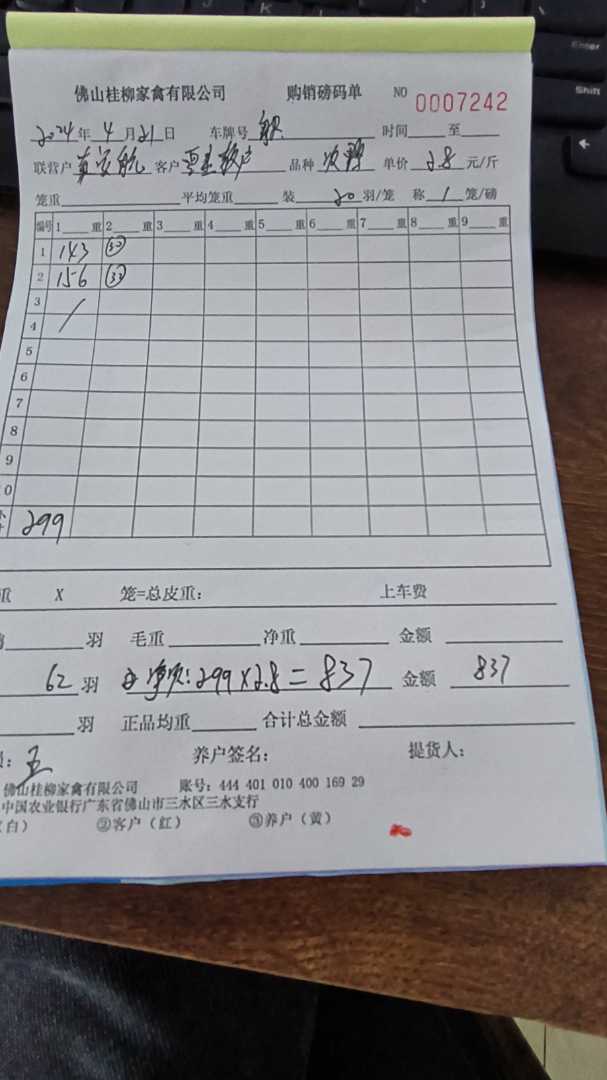 佛山桂柳家禽有限公司 购销磅码单 NO 0007242
2024年 4月21日 车牌号 时间 至
联营户 客户 品种 次鸭 单价 2.8 元/斤
笼重 平均笼重 装 20 羽/笼 称 1 笼/磅
编号 1 重 2 重 3 重 4 重 5 重 6 重 7 重 8 重 9 重
1 143 30
2 156 32
3 /
4
5
6
7
8
9
0
计 299
重 X 笼=总皮重: 上车费
羽 毛重 净重 金额
62 羽 净次:299×2.8=837 金额 837
羽 正品均重 合计总金额
员: 王 养户签名: 提货人:
佛山桂柳家禽有限公司 账号: 444 401 010 400 169 29
中国农业银行广东省佛山市三水区三水支行
(白) ②客户(红) ③养户(黄)